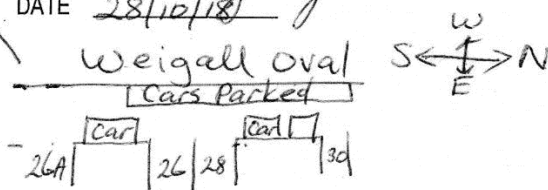 DATE 28/10/18
Weigall Oval
W
S N
E
Cars Parked
Car Car
26A 26 28 30